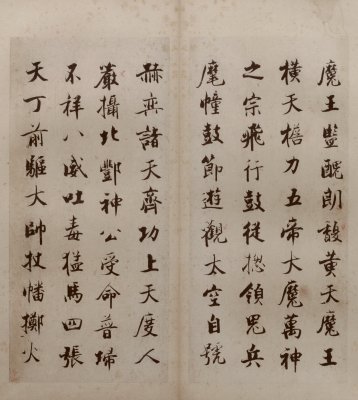 魔王監醜朗馥黃天魔王
橫天檐力五帝大魔萬神
之宗飛行鼓從揔領鬼兵
麾幢鼓節遊觀太空自號
赫奕諸天齊功上天度人
嚴攝北酆神公受命普埽
不祥八威吐毒猛馬四張
天丁前驅大帥杖幡擲火